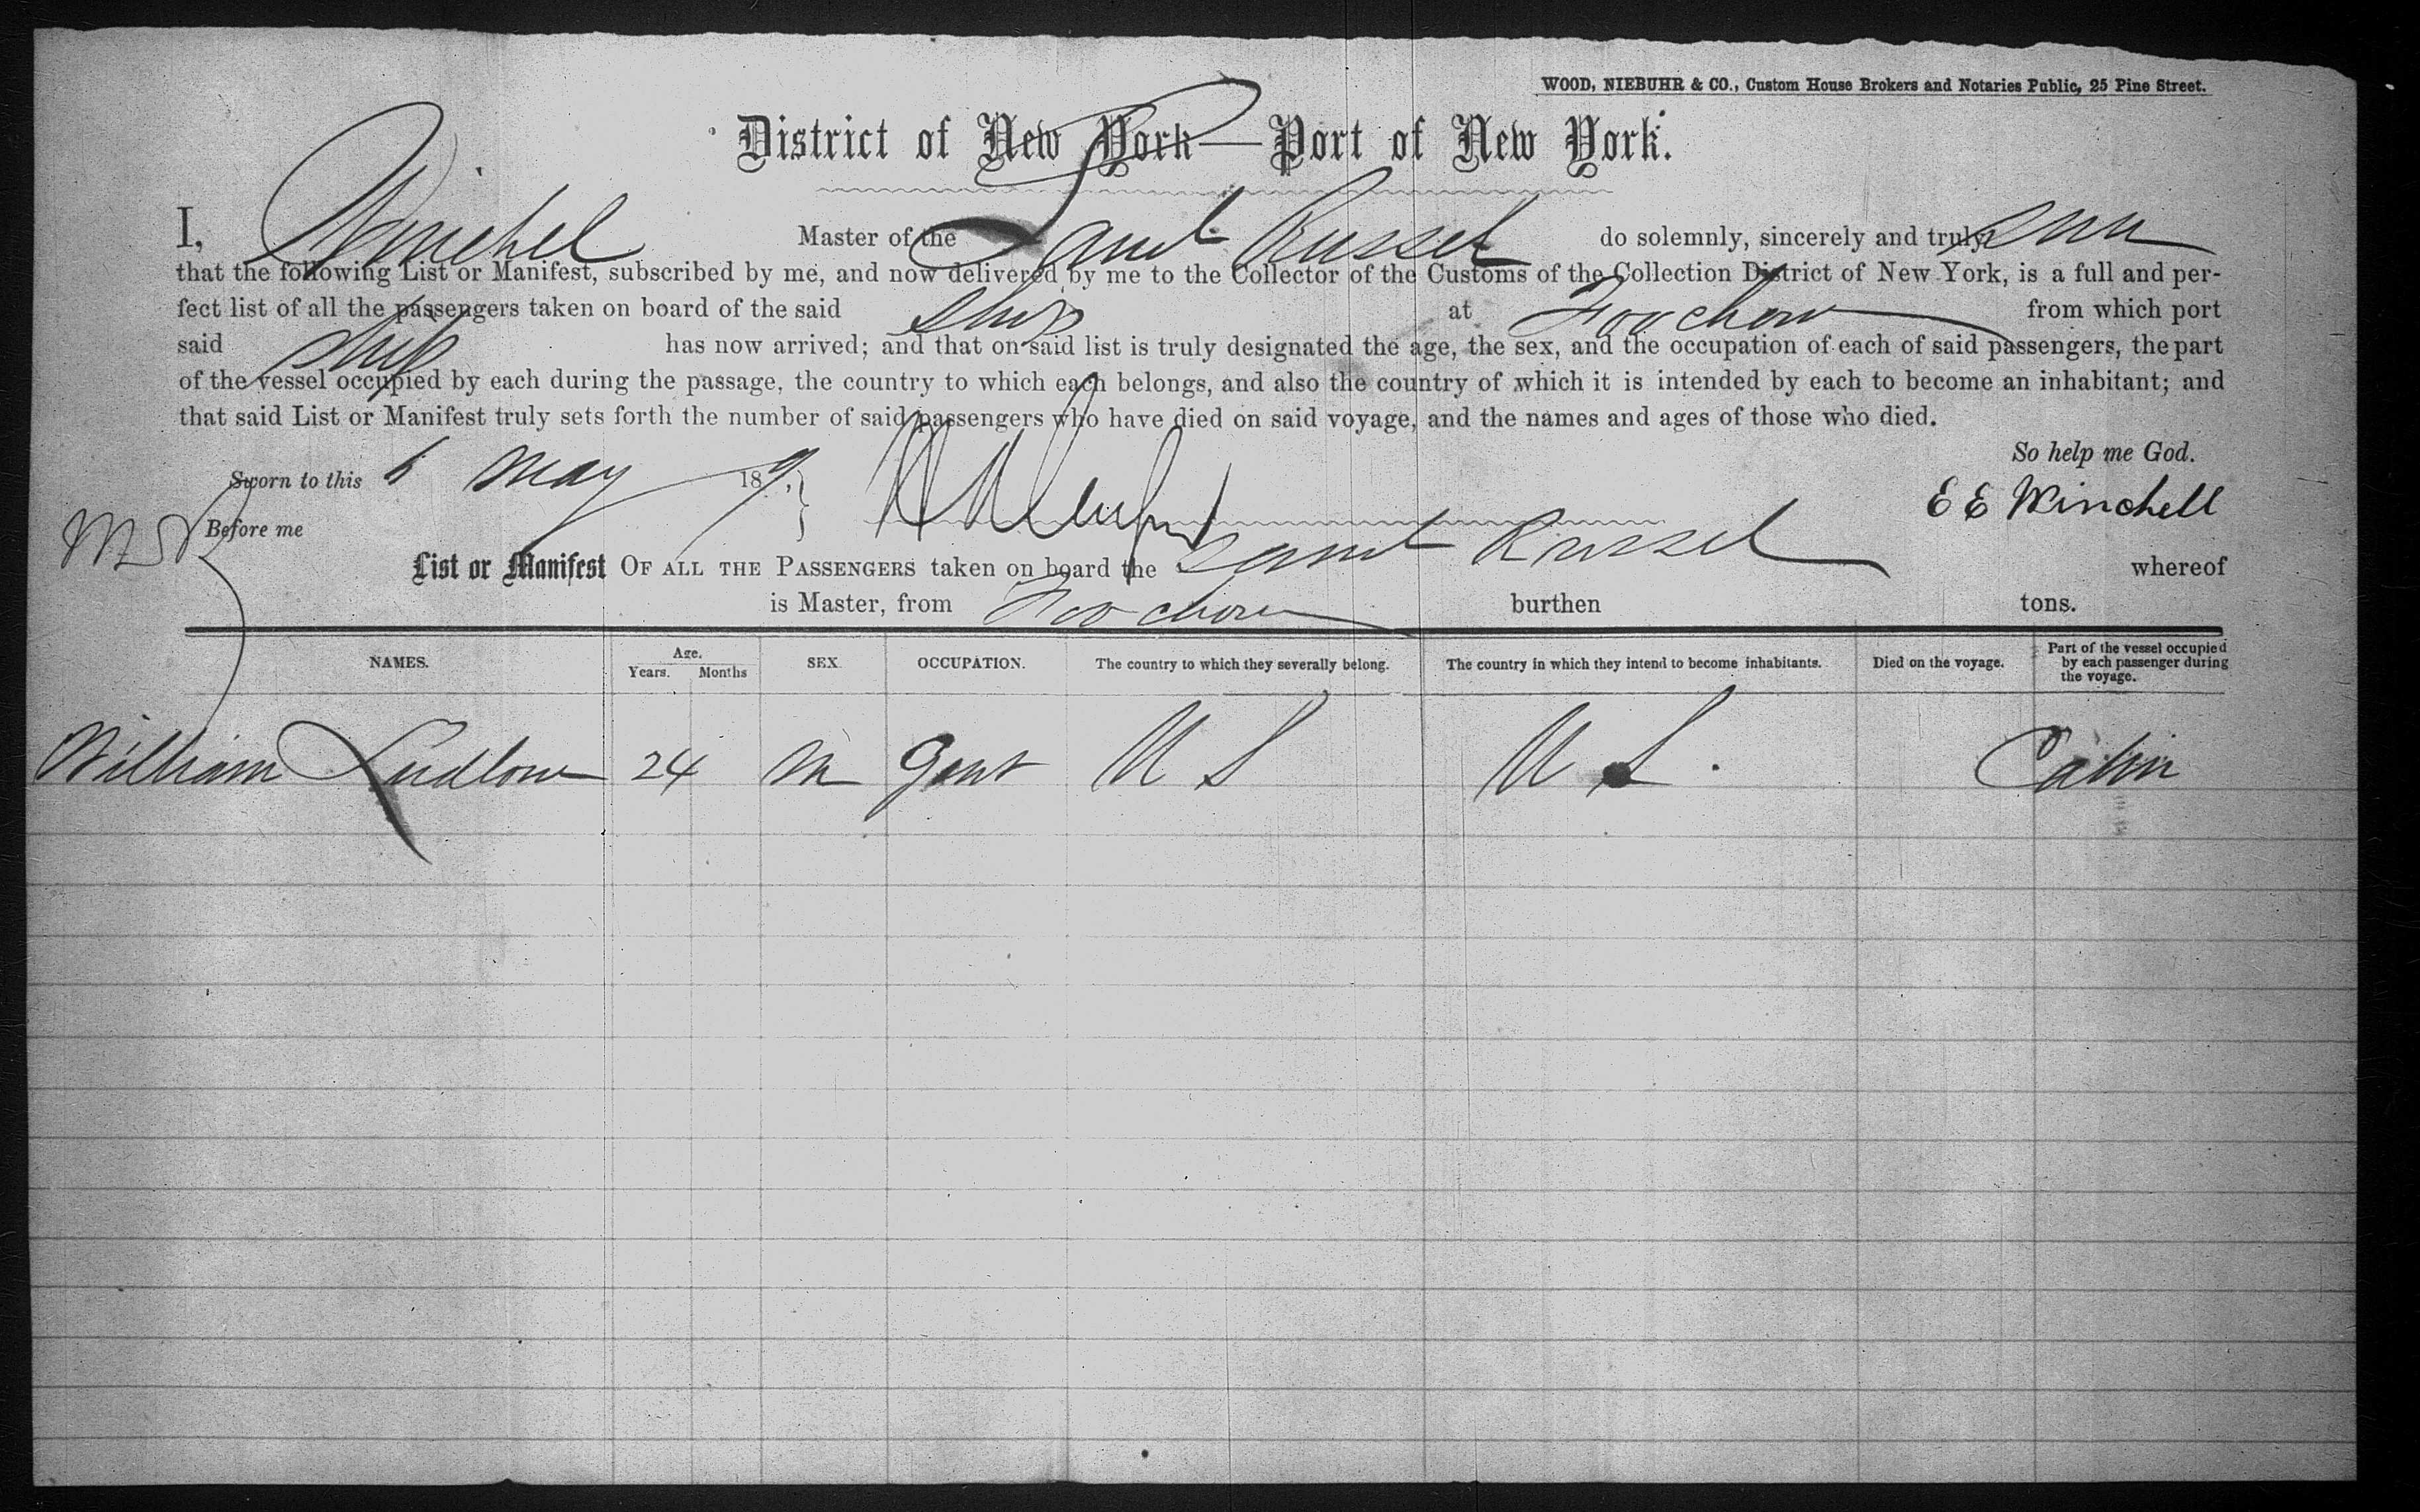 WOOD, NIEBUHR & CO., Custom House Brokers and Notaries Public, 25 Pine Street.
District of New York—Port of New York.
I, Winchel Master of the Saml Russel do solemnly, sincerely and truly
that the following List or Manifest, subscribed by me, and now delivered by me to the Collector of the Customs of the Collection District of New York, is a full and per-
fect list of all the passengers taken on board of the said Ship at Foochow from which port
said Ship has now arrived; and that on said list is truly designated the age, the sex, and the occupation of each of said passengers, the part
of the vessel occupied by each during the passage, the country to which each belongs, and also the country of which it is intended by each to become an inhabitant; and
that said List or Manifest truly sets forth the number of said passengers who have died on said voyage, and the names and ages of those who died.
So help me God.
Sworn to this 6 May 18
E E Winchell
Before me
List or Manifest OF ALL THE PASSENGERS taken on board the Saml Russel whereof
is Master, from Foochow burthen tons.
NAMES. Age. Years. Months SEX. OCCUPATION. The country to which they severally belong. The country in which they intend to become inhabitants. Died on the voyage. Part of the vessel occupied by each passenger during the voyage.
William Ludlow 24 M Gent U S U S. Cabin